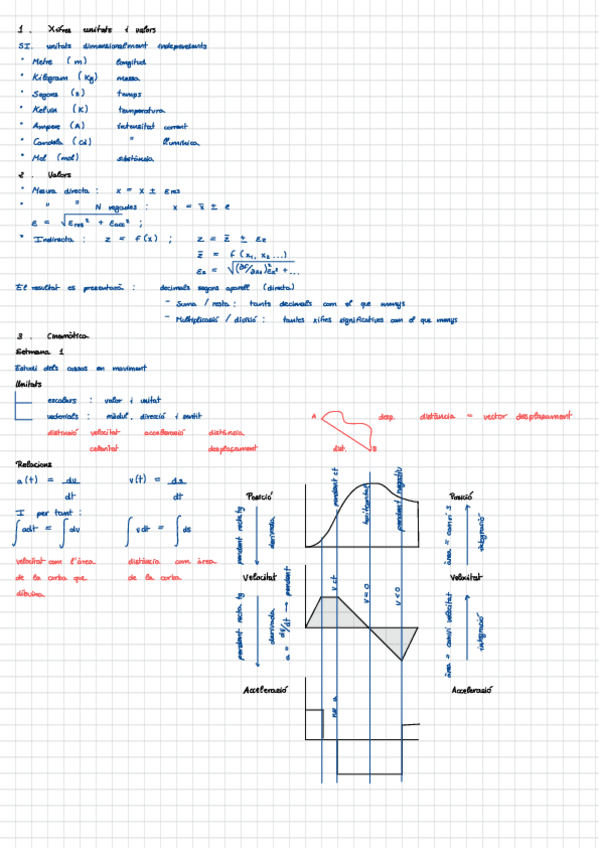 1. Xifres unitats i valors
S.I. unitats dimensionalment independents
• Metre (m) longitud
• Kilogram (Kg) massa
• Segons (s) temps
• Kelvin (K) temperatura
• Ampere (A) intensitat corrent
• Candela (Cd) " lluminica
• Mol (mol) substància
2. Valors
• Mesura directa : x = x ± Eres
• " " N vegades : x = x̄ ± e
E = √Eres² + Eacc² ;
• Indirecta : z = f(x) ; z = z̄ ± Ez
z̄ = f(x₁, x₂ ...)
Ez = √(∂f/∂x₁)²Ex² + ...
El resultat es presentarà : decimals segons aparell (directa)
- Suma / resta : tants decimals com el que menys
- Multiplicació / divisió : tantes xifres significatives com el que menys
3. Cinemàtica
Setmana 1
Estudi dels cossos en moviment
Unitats
escalars : valor i unitat
vectorials : mòdul, direcció i sentit
distinció velocitat acceleració distància
celeritat desplaçament
A desp. distància = vector desplaçament
dist. B
Relacions
a(t) = dv/dt v(t) = ds/dt
I per tant :
∫adt = ∫dv ∫vdt = ∫ds
velocitat com l'àrea distància com àrea
de la corba que de la corba
dibuixa.
Posició
pendent recta tg
derivada
pendent ct
horitzontal
pendent negatiu
Posició
àrea = canvi s
integració
Velocitat
pendent recta tg
derivada
a = dv/dt → pendent
v ct
v = 0
v < 0
Velocitat
àrea = canvi velocitat
integració
Acceleració
Acceleració